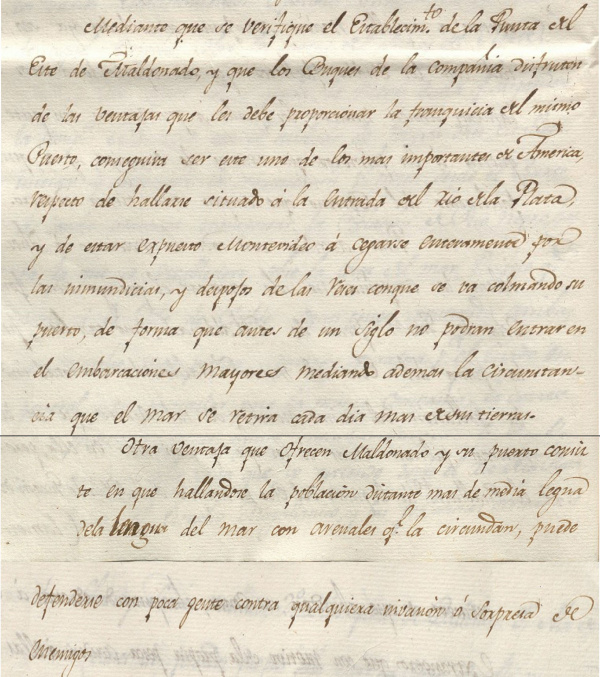 Mediante que se verifique el Establecim.to de la Punta del
Este de Maldonado, y que los Buques de la Compañia disfruten
de las ventajas que les debe proporcionar la franquicia del mismo
Puerto, conseguira ser este uno de los mas importantes de America,
respecto de hallarse situado á la entrada del rio dela Plata,
y de estar expuesto Montevideo á cegarse enteramente por
las inmundicias, y despojos de las reses conque se va colmando su
puerto, de forma que antes de un siglo no podran entrar en
el embarcaciones mayores mediando ademas la circunstan-
cia que el mar se retira cada dia mas de sus tierras.
Otra ventaja que ofrecen Maldonado y su puerto consis
te en que hallandose la población distante mas de media legua
dela lengua del mar con arenales q.e la circundan, puede
defenderse con poca gente contra qualquiera invasión ó sorpresa de
enemigos